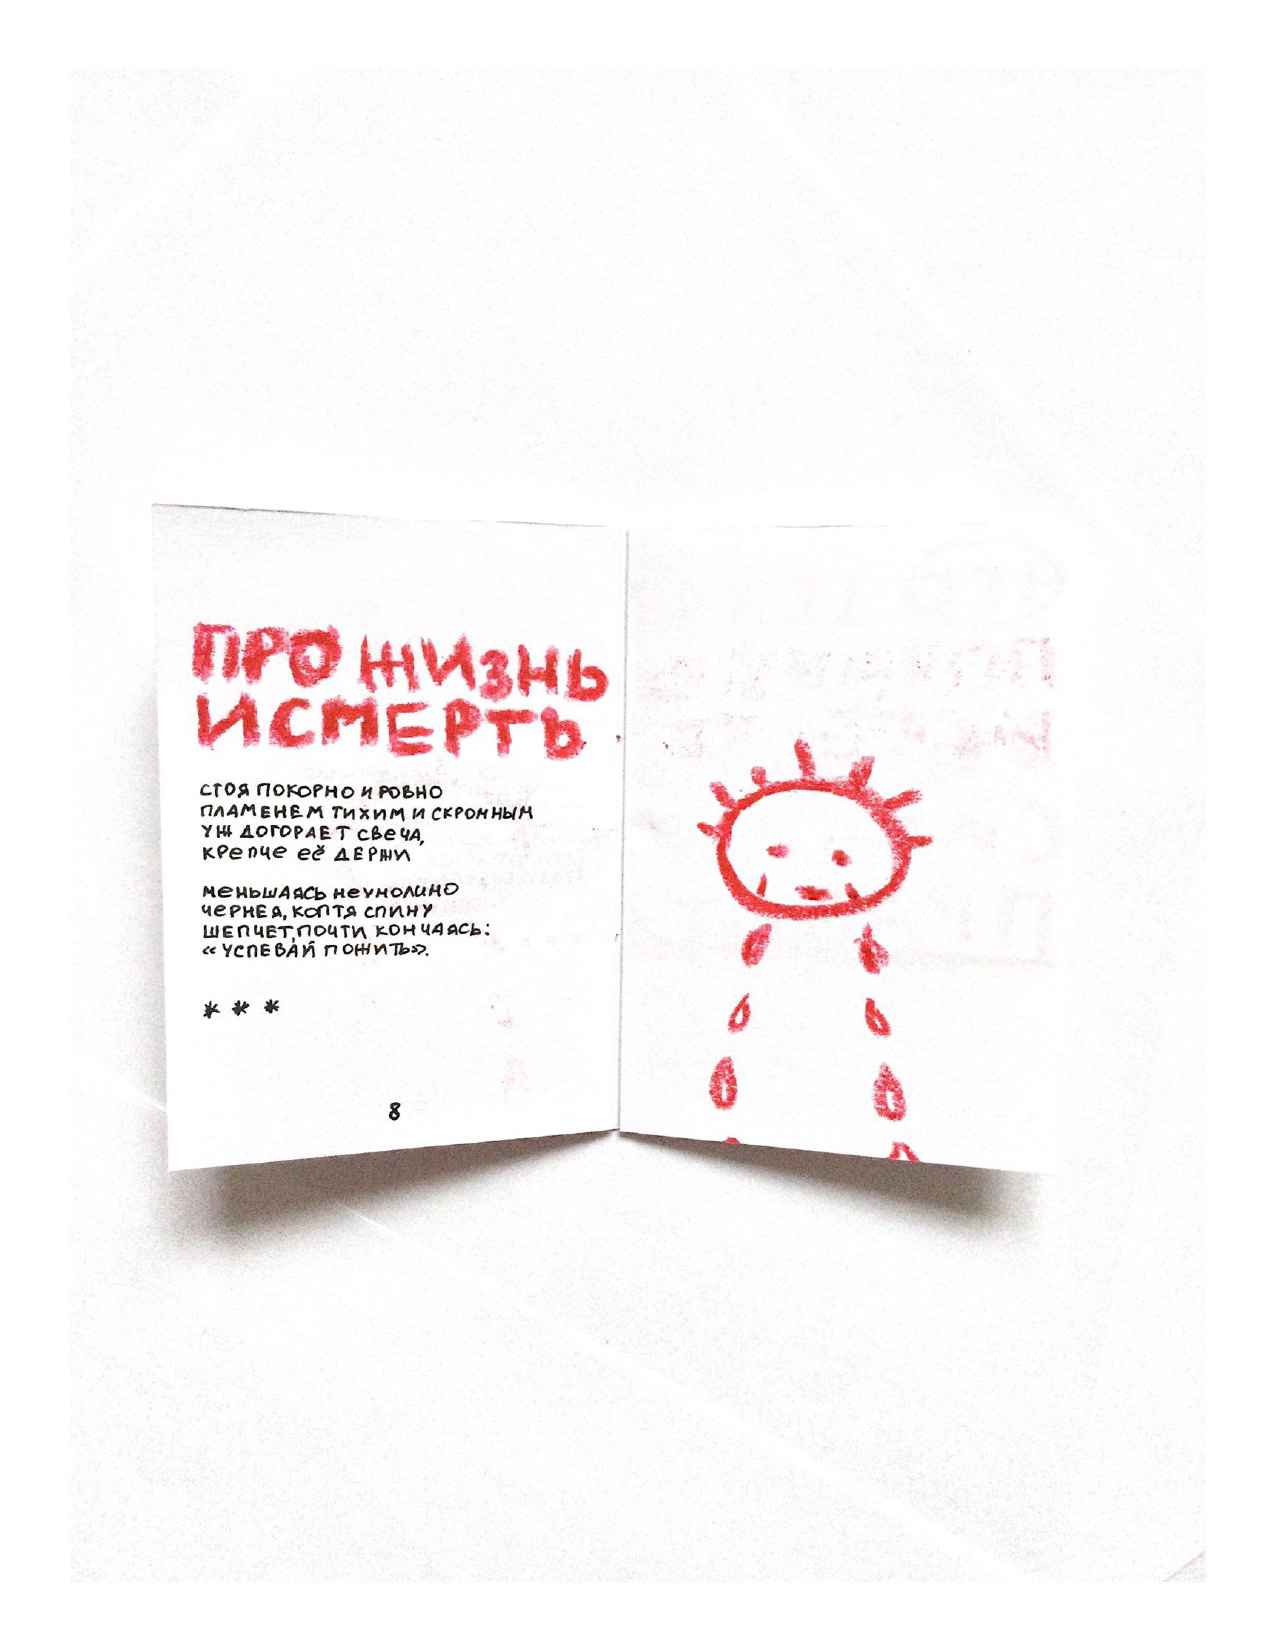 ПРО ЖИЗНЬ
И СМЕРТЬ
СТОЯ ПОКОРНО И РОВНО
ПЛАМЕНЕМ ТИХИМ И СКРОМНЫМ
УЖ ДОГОРАЕТ СВЕЧА,
КРЕПЧЕ ЕЁ ДЕРЖИ
МЕНЬШАЯСЬ НЕУМОЛИМО
ЧЕРНЕЯ, КОПТЯ СПИНУ
ШЕПЧЕТ, ПОЧТИ КОНЧАЯСЬ:
«УСПЕВАЙ ПОЖИТЬ».
* * *
8